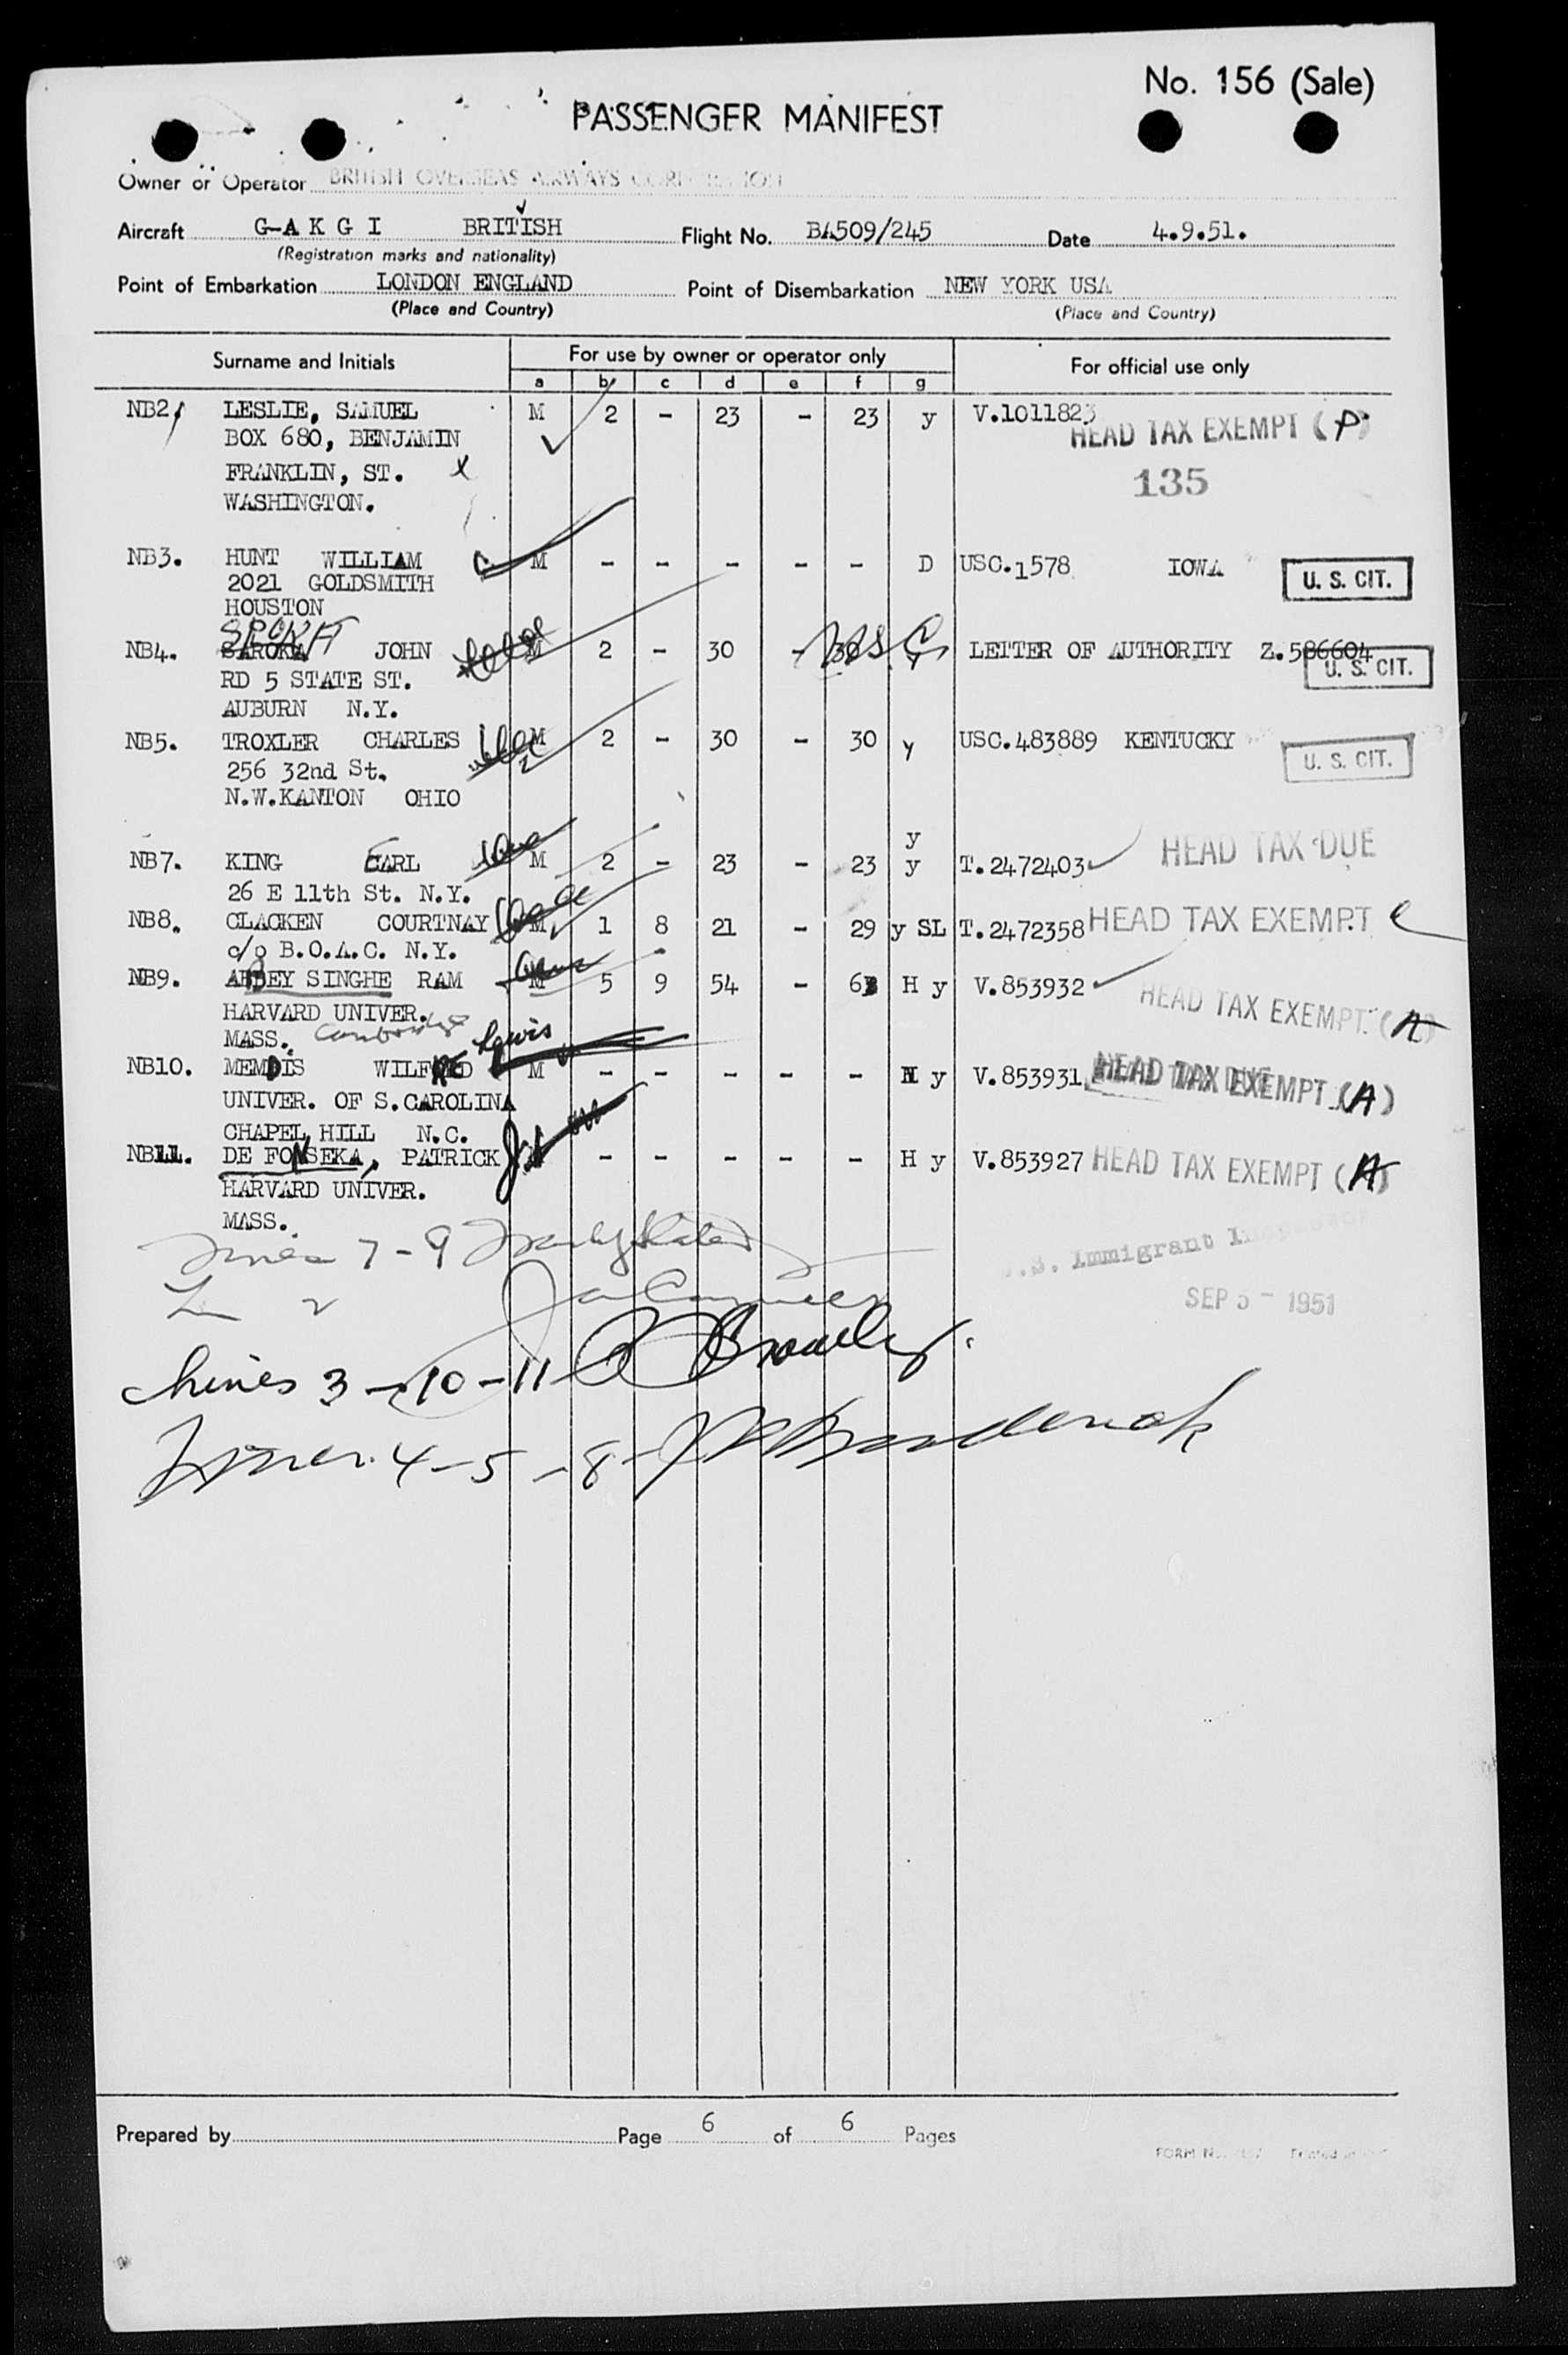 No. 156 (Sale)
PASSENGER MANIFEST
Owner or Operator BRITISH OVERSEAS AIRWAYS CORPORATION
Aircraft G-A K G I BRITISH Flight No. BA509/245 Date 4.9.51.
(Registration marks and nationality)
Point of Embarkation LONDON ENGLAND Point of Disembarkation NEW YORK USA
(Place and Country) (Place and Country)
Surname and Initials For use by owner or operator only For official use only
a b c d e f g
NB2. LESLIE, SAMUEL M 2 - 23 - 23 y V.1011823
BOX 680, BENJAMIN HEAD TAX EXEMPT (P)
FRANKLIN, ST. X 135
WASHINGTON.
NB3. HUNT WILLIAM M - - - - - D USC.1578 IOWA U. S. CIT.
2021 GOLDSMITH
HOUSTON
NB4. SAROKA JOHN M 2 - 30 - 30 y USC LETTER OF AUTHORITY Z.586604
RD 5 STATE ST. U. S. CIT.
AUBURN N.Y.
NB5. TROXLER CHARLES M 2 - 30 - 30 y USC.483889 KENTUCKY
256 32nd St. U. S. CIT.
N.W.KANTON OHIO
y
NB7. KING EARL M 2 - 23 - 23 y T.2472403 HEAD TAX DUE
26 E 11th St. N.Y.
NB8. CLACKEN COURTNAY M 1 8 21 - 29 y SL T.2472358 HEAD TAX EXEMPT
c/o B.O.A.C. N.Y.
NB9. ABBEY SINGHE RAM M 5 9 54 - 63 H y V.853932
HARVARD UNIVER. HEAD TAX EXEMPT (A)
MASS. Cambridge
Lewis
NB10. MEMDIS WILFRED M - - - - - N y V.853931 HEAD TAX EXEMPT (A)
UNIVER. OF S.CAROLINA
CHAPEL HILL N.C.
NB11. DE FONSEKA, PATRICK - - - - - H y V.853927 HEAD TAX EXEMPT (A)
HARVARD UNIVER.
MASS.
Lines 7 - 9
U.S. Immigrant Inspector
SEP 5 - 1951
Lines 3 - 10 - 11
Lines 4 - 5 - 8
Prepared by Page 6 of 6 Pages
FORM No.